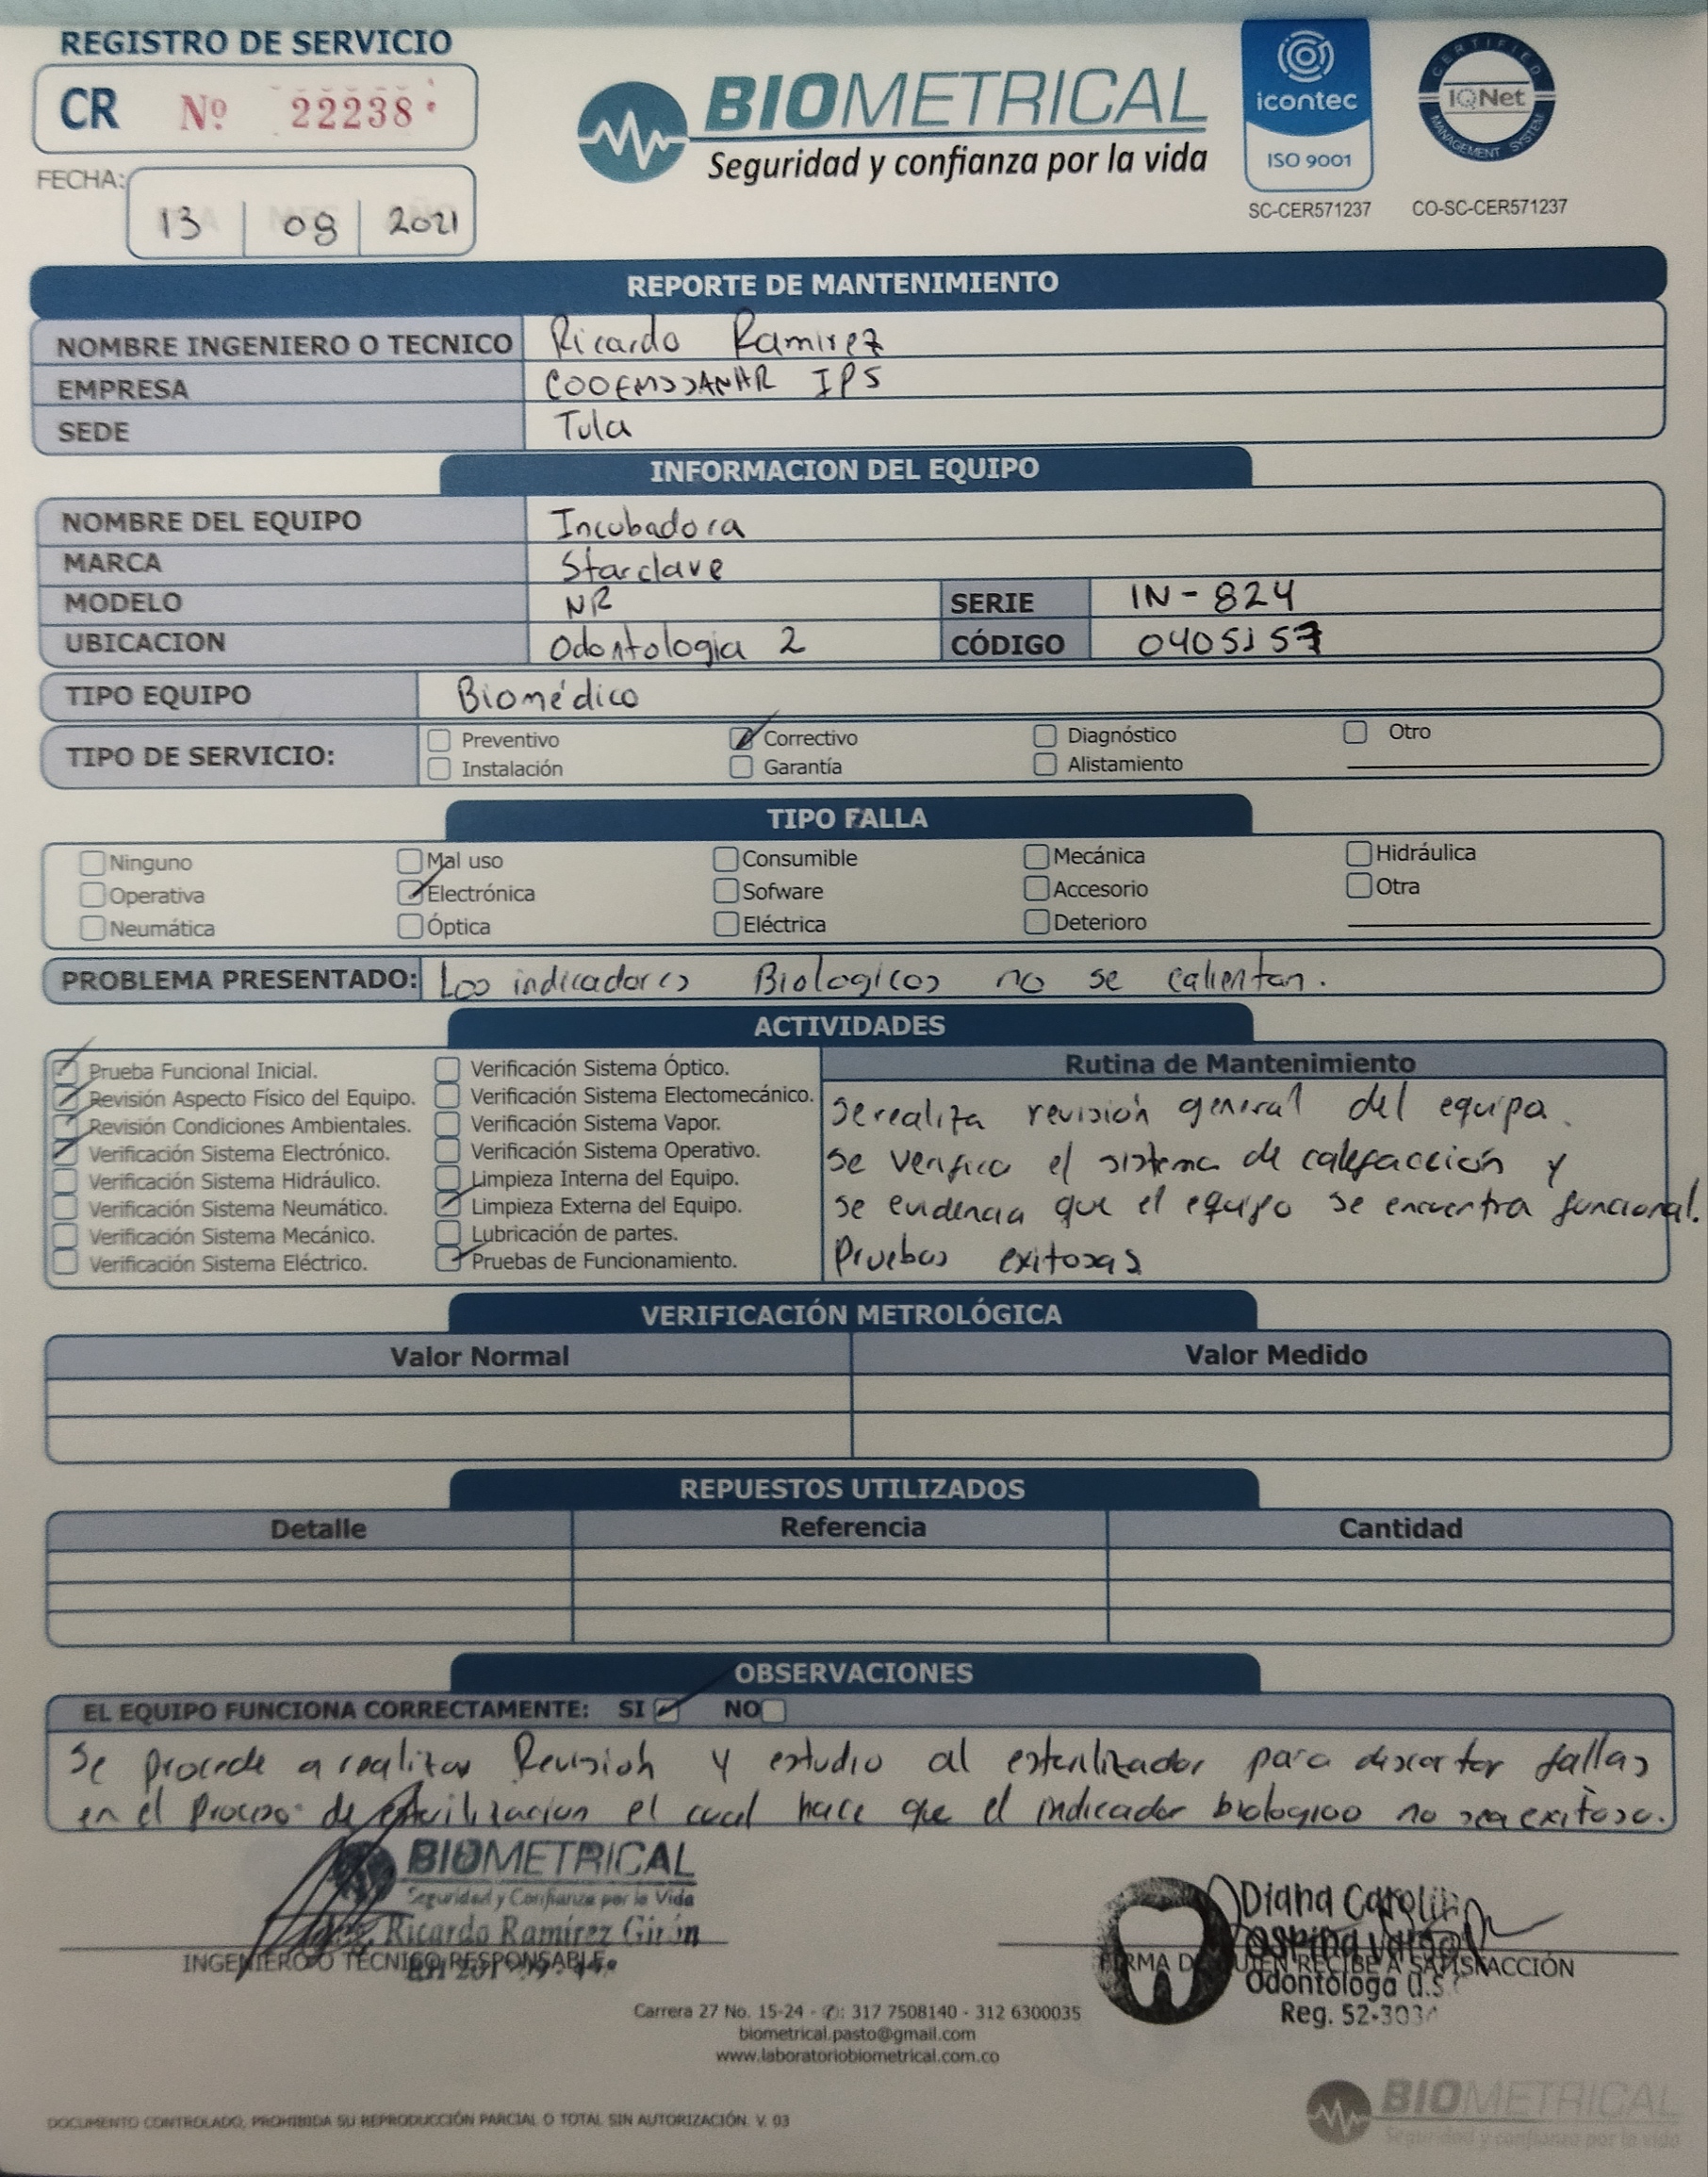 REGISTRO DE SERVICIO
CR Nº 22238
BIOMETRICAL
Seguridad y confianza por la vida
icontec
ISO 9001
SC-CER571237
CERTIFIED
IQNet
MANAGEMENT SYSTEM
CO-SC-CER571237
FECHA: 13 08 2021
REPORTE DE MANTENIMIENTO
NOMBRE INGENIERO O TECNICO Ricardo Ramirez
EMPRESA COOEMSSANAR IPS
SEDE Tula
INFORMACION DEL EQUIPO
NOMBRE DEL EQUIPO Incubadora
MARCA Starclave
MODELO NR SERIE IN-824
UBICACION Odontologia 2 CÓDIGO 0405157
TIPO EQUIPO Biomédico
TIPO DE SERVICIO: Preventivo Correctivo Diagnóstico Otro
Instalación Garantía Alistamiento
TIPO FALLA
Ninguno Mal uso Consumible Mecánica Hidráulica
Operativa Electrónica Sofware Accesorio Otra
Neumática Óptica Eléctrica Deterioro
PROBLEMA PRESENTADO: Los indicadores Biologicos no se calientan.
ACTIVIDADES
Prueba Funcional Inicial.
Revisión Aspecto Físico del Equipo.
Revisión Condiciones Ambientales.
Verificación Sistema Electrónico.
Verificación Sistema Hidráulico.
Verificación Sistema Neumático.
Verificación Sistema Mecánico.
Verificación Sistema Eléctrico.
Verificación Sistema Óptico.
Verificación Sistema Electomecánico.
Verificación Sistema Vapor.
Verificación Sistema Operativo.
Limpieza Interna del Equipo.
Limpieza Externa del Equipo.
Lubricación de partes.
Pruebas de Funcionamiento.
Rutina de Mantenimiento
se realiza revisión general del equipo.
se verifica el sistema de calefacción y
se evidencia que el equipo se encuentra funcional.
Pruebas exitosas
VERIFICACIÓN METROLÓGICA
Valor Normal Valor Medido
REPUESTOS UTILIZADOS
Detalle Referencia Cantidad
OBSERVACIONES
EL EQUIPO FUNCIONA CORRECTAMENTE: SI NO
Se procede a realizar Revisión y estudio al esterilizador para descartar fallas
en el proceso de esterilizacion el cual hace que el indicador biologico no sea exitoso.
BIOMETRICAL
Seguridad y Confianza por la Vida
Ing. Ricardo Ramírez Girón
INGENIERO O TECNICO RESPONSABLE
Diana Carolina
Ospina Vargas
FIRMA DE QUIEN RECIBE A SATISFACCIÓN
Odontóloga U.S.
Reg. 52-303
Carrera 27 No. 15-24 - ✆: 317 7508140 - 312 6300035
biometrical.pasto@gmail.com
www.laboratoriobiometrical.com.co
DOCUMENTO CONTROLADO, PROHIBIDA SU REPRODUCCIÓN PARCIAL O TOTAL SIN AUTORIZACIÓN. V. 03
BIOMETRICAL
Seguridad y confianza por la vida